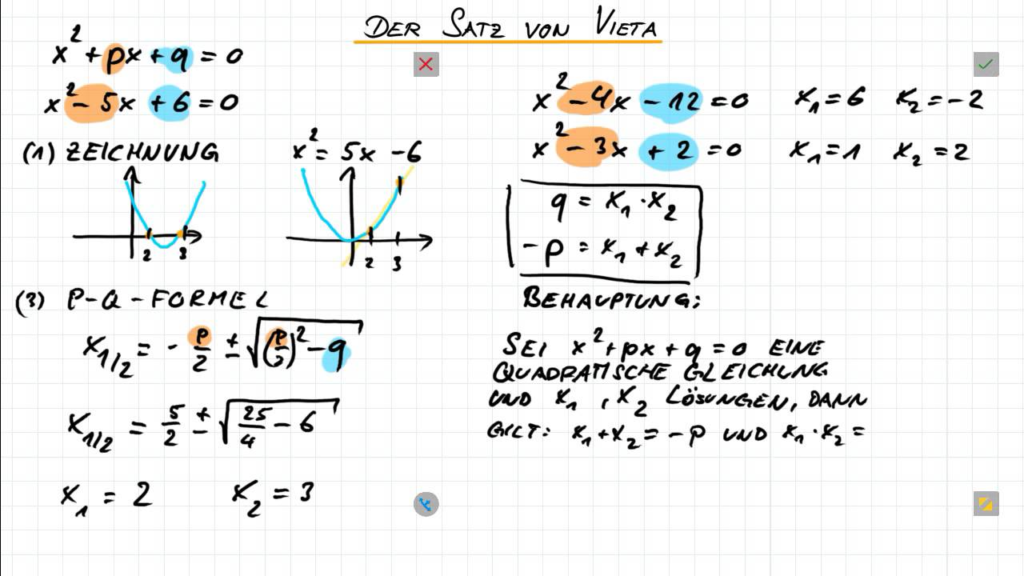 DER SATZ VON VIETA
x² + px + q = 0
x² - 5x + 6 = 0
(1) ZEICHNUNG
x² = 5x - 6
2 3
2 3
(3) P-Q-FORMEL
x₁/₂ = - p/2 ± √((p/2)² - q)
x₁/₂ = 5/2 ± √(25/4 - 6)
x₁ = 2 x₂ = 3
x² - 4x - 12 = 0 x₁ = 6 x₂ = -2
x² - 3x + 2 = 0 x₁ = 1 x₂ = 2
q = x₁ · x₂
-p = x₁ + x₂
BEHAUPTUNG:
SEI x² + px + q = 0 EINE
QUADRATISCHE GLEICHUNG
UND x₁, x₂ LÖSUNGEN, DANN
GILT: x₁ + x₂ = -p UND x₁ · x₂ =